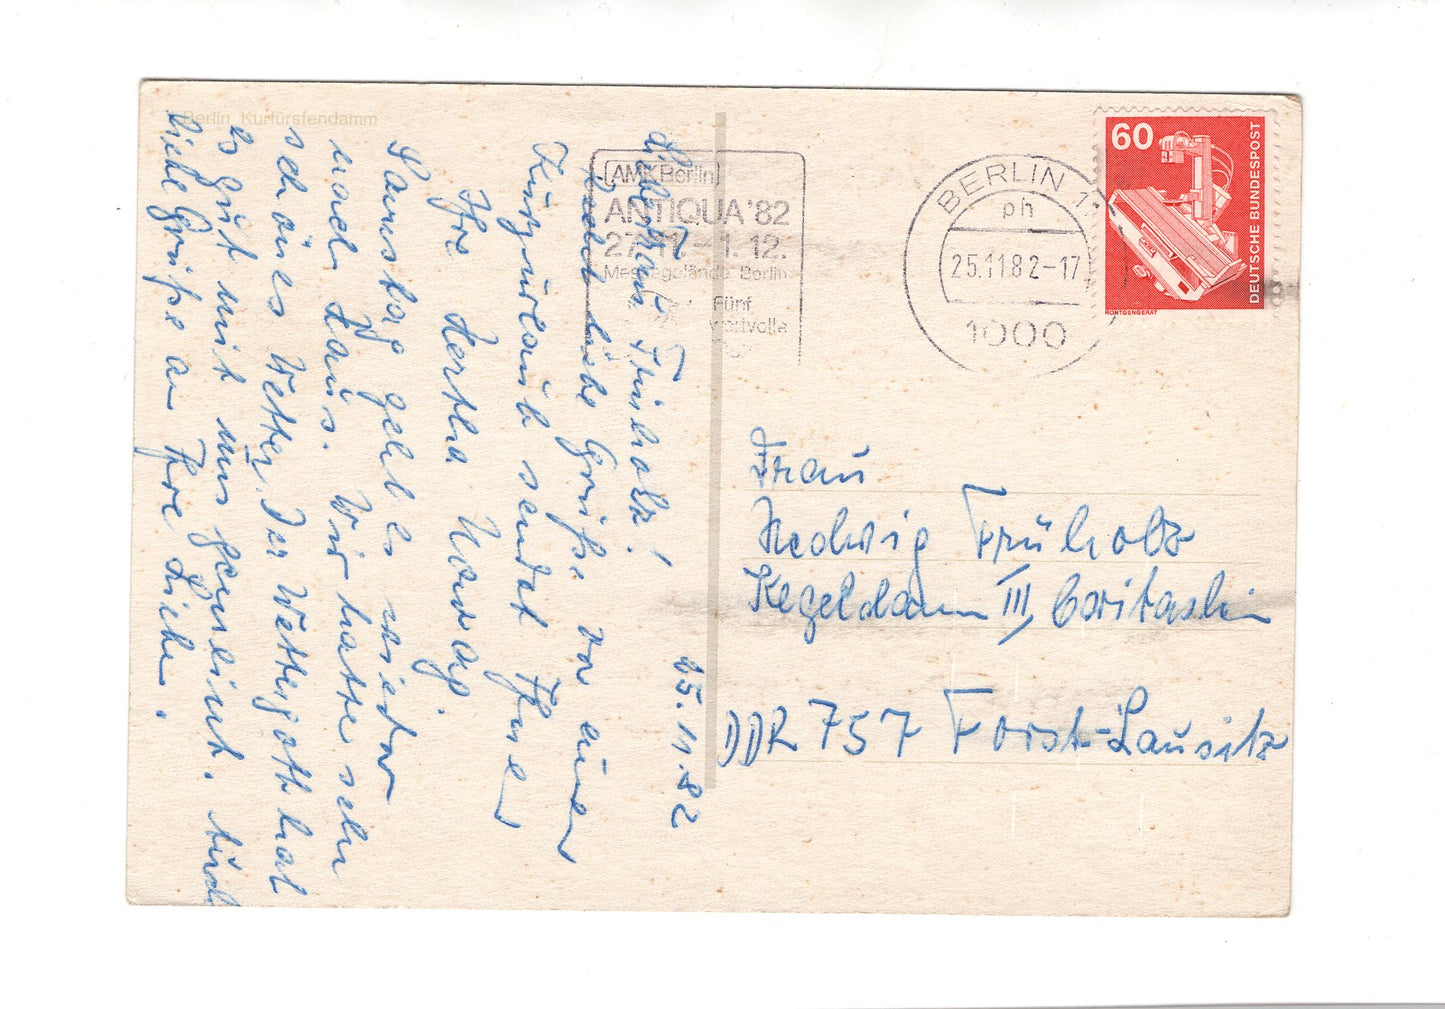 Berlin, Kurfürstendamm
25.11.82
Liebe Frau Frühholz!
Recht liebe Grüße von einer
Kurzurlaub sendet Ihnen
Ihre Hertha
Samstag geht es wieder
nach Haus. Wir hatten sehr
schönes Wetter. Der Wettergott hat
es gut mit uns gemeint. Auch
liebe Grüße an Ihre Lieben.
AMK Berlin
ANTIQUA '82
27.11.-1.12.
Messegelände Berlin
Fünf
wertvolle
BERLIN 1
ph
25.11.82-17
1000
60
DEUTSCHE BUNDESPOST
RÖNTGENGERÄT
Frau
Hedwig Früholz
Kegeldamm III, Caritasheim
DDR 757 Forst-Lausitz